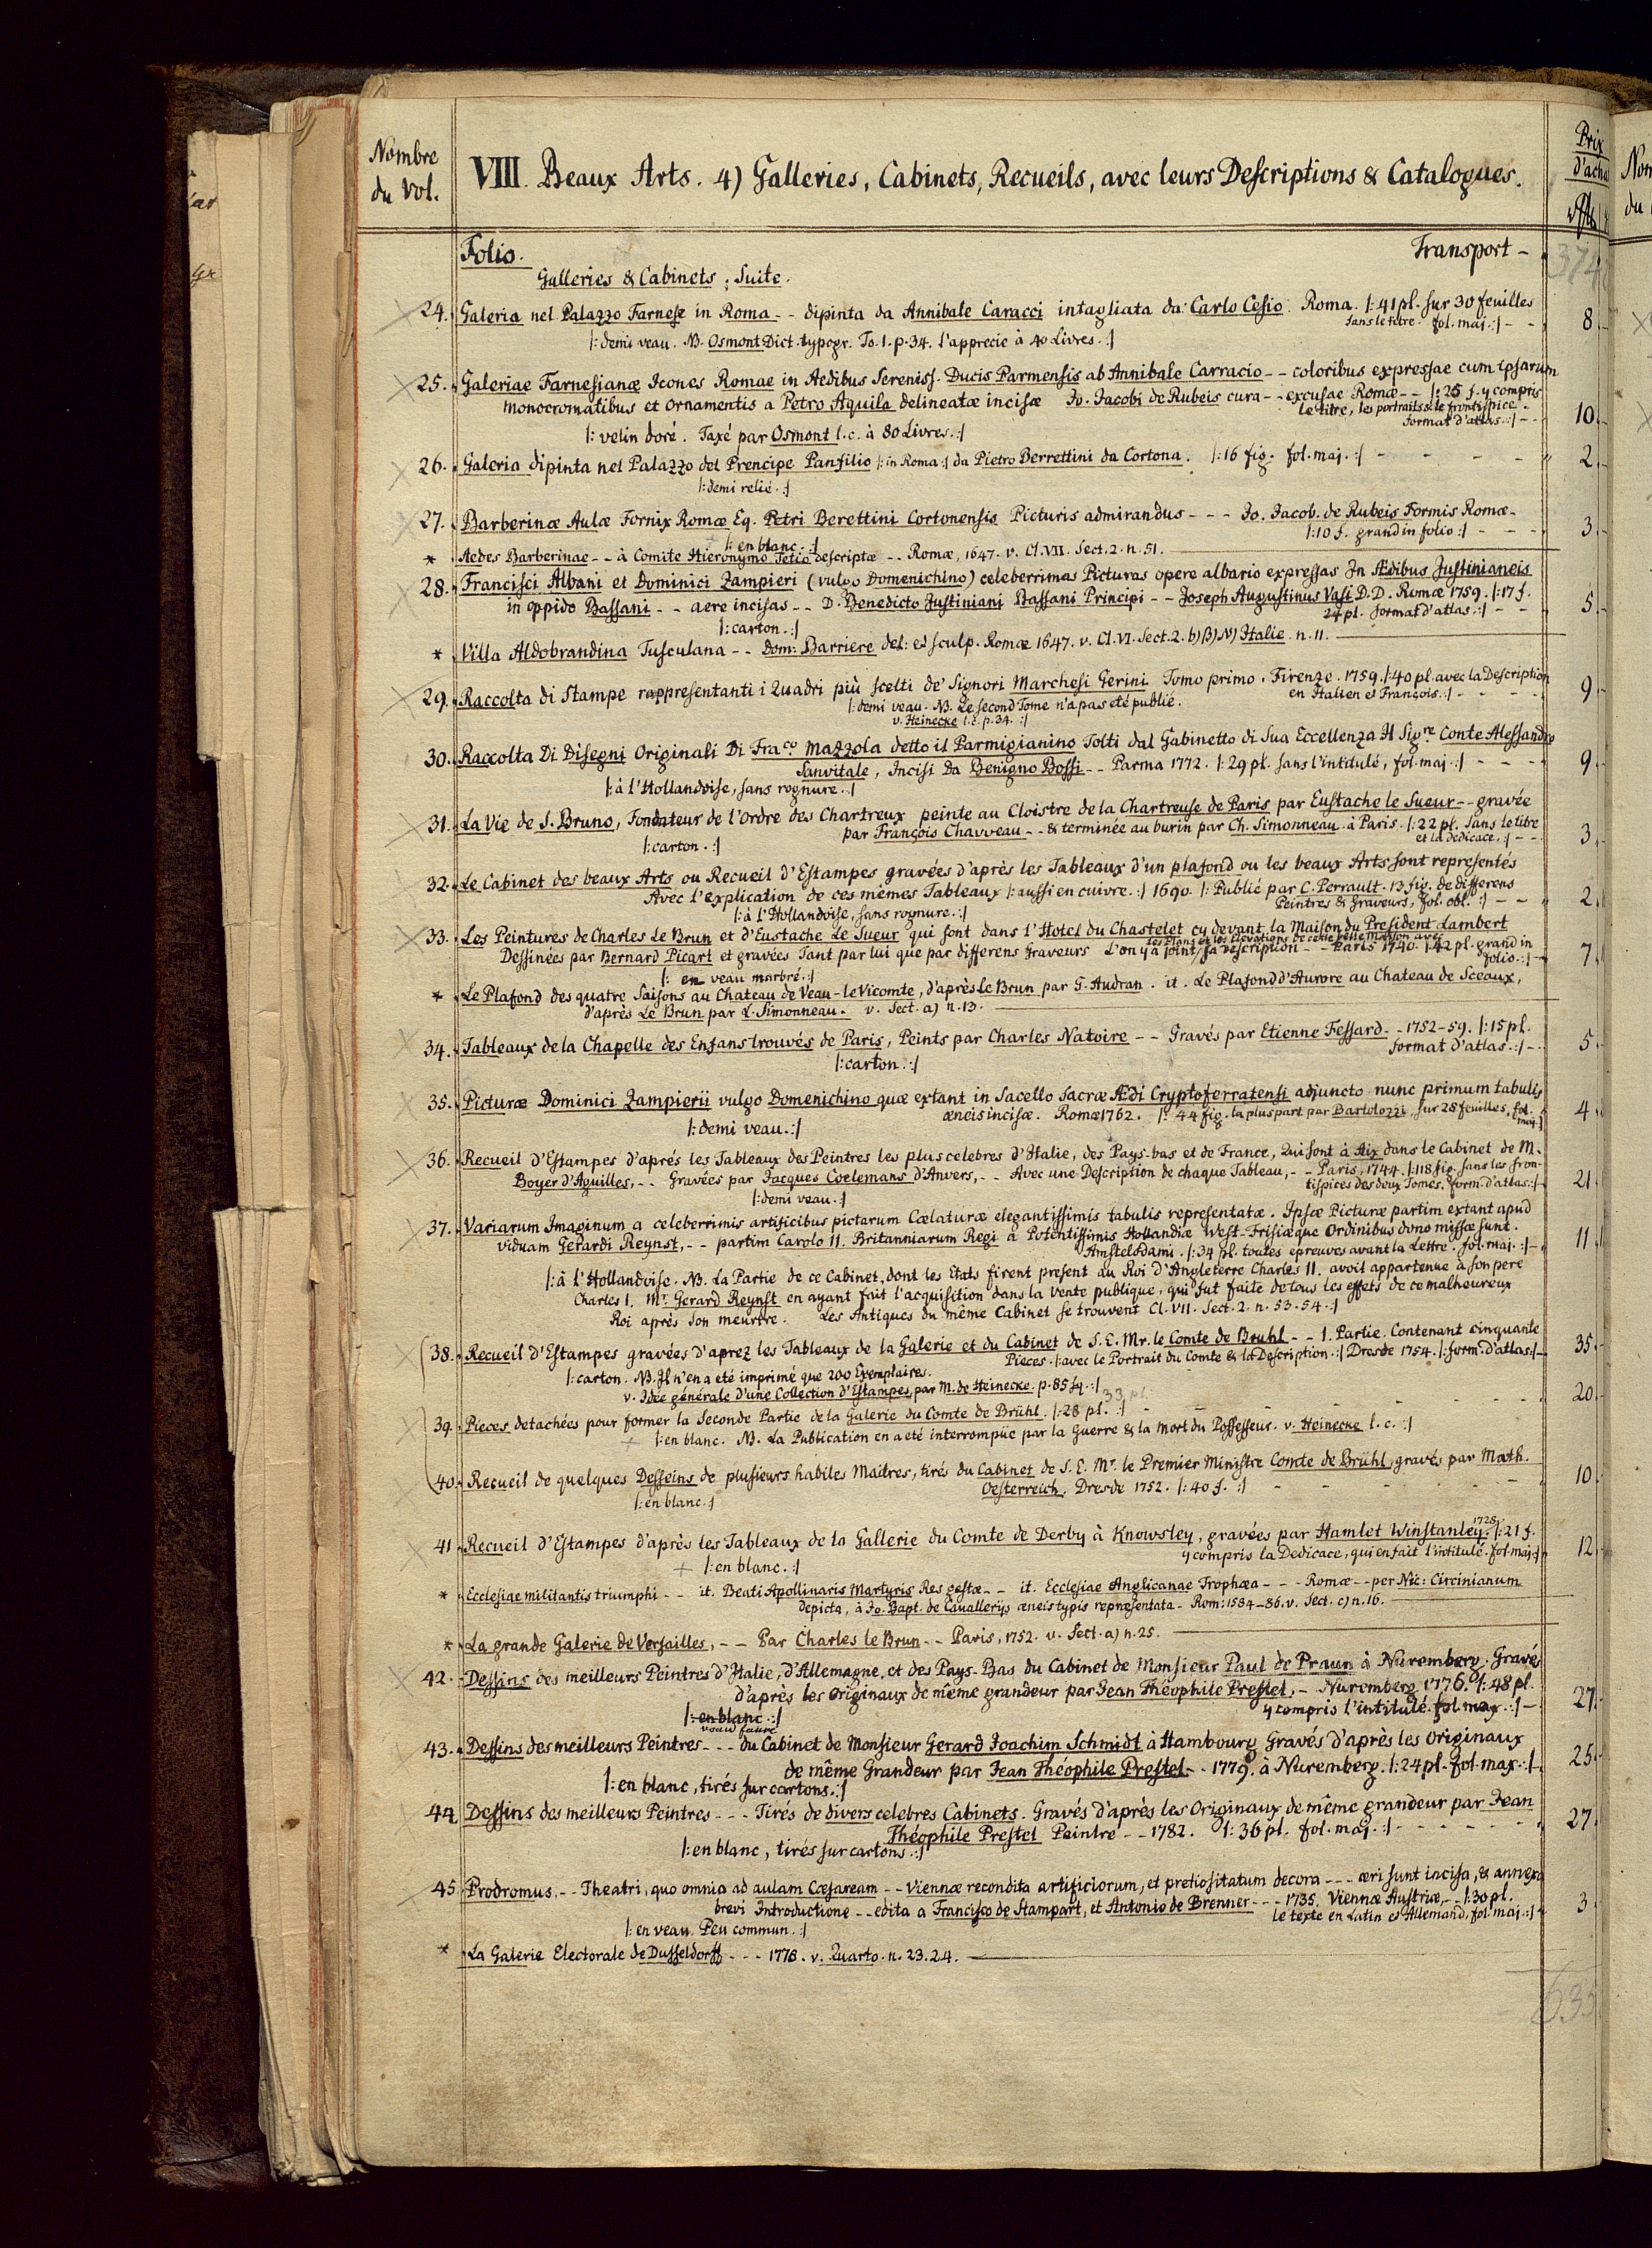 Nombre
du Vol.
VIII. Beaux Arts. 4) Galleries, Cabinets, Recueils, avec leurs Descriptions & Catalogues.
Prix
d'acha
Folio.
Transport –
374
Galleries & Cabinets ; Suite.
24. Galeria nel Palazzo Farnese in Roma - - dipinta da Annibale Caracci intagliata da Carlo Cesio. Roma. |: 41 pl. sur 30 feuilles
sans le titre. fol. maj. :| - - 8.-
|: demi veau. NB. Osmont Dict. typogr. To. 1. p. 34. l'apprecie à 40 Livres. :|
25. Galeriae Farnesianæ Icones Romae in Aedibus Sereniss. Ducis Parmensis ab Annibale Carracio - - coloribus expressae cum ipsarum
monocromatibus et ornamentis a Petro Aquila delineatæ incisæ Jo. Jacobi de Rubeis cura - - excusae Romæ - - |: 25 f. y compris
le titre, les portraits & le frontispice.
format d'atlas. :| - - 10.-
|: velin doré. Taxé par Osmont l. c. à 80 Livres. :|
26. Galeria dipinta nel Palazzo del Prencipe Panfilio |: in Roma :| da Pietro Berrettini da Cortona. |: 16 fig. fol. maj. :| - - - - 2.-
|: demi relié. :|
27. Barberinæ Aulæ Fornix Romæ Eq. Petri Berettini Cortonensis Picturis admirandus - - - Jo. Jacob. de Rubeis Formis Romæ -
|: 10 f. grand in folio :| - - - 3.-
|: en blanc. :|
* Aedes Barberinae - - à Comite Hieronymo Tetio descriptæ - - Romæ, 1647. v. Cl. VII. Sect. 2. n. 51.
28. Francisci Albani et Dominici Zampieri (vulgo Domenichino) celeberrimas Picturas opere albario expressas In Ædibus Justinianeis
in oppido Bassani - - aere incisas - - D. Benedicto Justiniani Bassani Principi - - Joseph Augustinus Vasi D. D. Romæ 1759. |: 17 f.
24 pl. format d'atlas. :| - - 5.-
|: carton. :|
* Villa Aldobrandina Tusculana - - Dom: Barriere del: et sculp. Romæ 1647. v. Cl. VI. Sect. 2. b) B) N) Italie. n. 11.
29. Raccolta di Stampe rappresentanti i Quadri più scelti de' Signori Marchesi Gerini Tomo primo. Firenze. 1759. |: 40 pl. avec la Description
en Italien et François. :| - - - - 9.-
|: demi veau. NB. Le second Tome n'a pas eté publié.
v. Heinecke l. c. p. 34. :|
30. Raccolta Di Disegni Originali Di Fra.co Mazzola detto il Parmigianino Tolti dal Gabinetto di Sua Eccellenza Il Sig.re Conte Alessandro
Sanvitale, Incisi Da Benigno Bossi - - Parma 1772. |: 29 pl. sans l'intitulé, fol. maj. :| - - - - 9.-
|: à l'Hollandoise, sans rognure. :|
31. La Vie de S. Bruno, Fondateur de l'Ordre des Chartreux peinte au Cloistre de la Chartreuse de Paris par Eustache le Sueur - - gravée
par François Chauveau - - & terminée au burin par Ch. Simonneau. à Paris. |: 22 pl. Sans le titre
et la Dedicace. :| - - 3.
|: carton. :|
32. Le Cabinet des beaux Arts ou Recueil d'Estampes gravées d'après les Tableaux d'un plafond ou les beaux Arts sont representés
Avec l'explication de ces mêmes Tableaux |: aussi en cuivre. :| 1690. |: Publié par C. Perrault. 13 fig. de differens
Peintres & Graveurs, fol. obl. :| - - 2.
|: à l'Hollandoise, sans rognure. :|
33. Les Peintures de Charles Le Brun et d'Eustache Le Sueur qui sont dans l'Hotel du Chastelet cy devant la Maison du President Lambert
Dessinées par Bernard Picart et gravées Tant par lui que par differens Graveurs L'on y a joint les Plans et les Elevations de cette belle Maison avec sa Description - - Paris 1740. |: 42 pl. grand in
folio. :| - 7.
|: en veau marbré. :|
* Le Plafond des quatre Saisons au Chateau de Veau-le Vicomte, d'après Le Brun par G. Audran. it. Le Plafond d'Aurore au Chateau de Sceaux,
d'après Le Brun par L. Simonneau. v. Sect. a) n. 13.
34. Tableaux de la Chapelle des Enfans trouvés de Paris, Peints par Charles Natoire - - Gravés par Etienne Fessard - - 1752-59. |: 15 pl.
format d'atlas. :| - - 5.
|: carton. :|
35. Picturæ Dominici Zampierii vulgo Domenichino quæ extant in Sacello Sacræ Ædi Cryptoferratensi adjuncto nunc primum tabulis
æneis incisæ. Romæ 1762. |: 44 fig. la pluspart par Bartolozzi, sur 28 feuilles, fol.
maj. :| 4.
|: demi veau. :|
36. Recueil d'Estampes d'aprés les Tableaux des Peintres les plus celebres d'Italie, des Pays-bas et de France, Qui sont à Aix dans le Cabinet de M.
Boyer d'Aguilles, - - Gravées par Jacques Coelemans d'Anvers, - - Avec une Description de chaque Tableau, - - Paris, 1744. |: 118 fig. sans les fron-
tispices des deux Tomes. form. d'atlas. :| 21.
|: demi veau. :|
37. Variarum Imaginum a celeberrimis artificibus pictarum Cælaturæ elegantissimis tabulis representatæ. Ipsæ Picturæ partim extant apud
viduam Gerardi Reynst, - - partim Carolo II. Britanniarum Regi a Potentissimis Hollandiæ West-Frisiæque Ordinibus dono missæ sunt.
Amstelodami. |: 34 pl. toutes épreuves avant la Lettre. fol. maj. :| - 11.
|: à l'Hollandoise. NB. La Partie de ce Cabinet, dont les Etats firent present au Roi d'Angleterre Charles II. avoit appartenue à son pere
Charles I. Mr. Gerard Reynst en ayant fait l'acquisition dans la vente publique, qui fut faite de tous les effets de ce malheureux
Roi aprés son meurtre. Les Antiques du même Cabinet se trouvent Cl. VII. Sect. 2. n. 53. 54. :|
38. Recueil d'Estampes gravées d'aprez les Tableaux de la Galerie et du Cabinet de S. E. Mr. le Comte de Bruhl - - 1. Partie. Contenant cinquante
Pieces. |: avec le Portrait du Comte & la Description. :| Dresde 1754. |: form. d'atlas :| - 35.
|: carton. NB. Il n'en a eté imprimé que 200 Exemplaires.
v. Idée générale d'une Collection d'Estampes, par M. de Heinecke. p. 85 sq. :|
33 pl.
39. Pieces detachées pour former la Seconde Partie de la Galerie du Comte de Brühl. |: 28 pl. :| - - - - 20.
|: en blanc. NB. La Publication en a eté interrompüe par la Guerre & la Mort du Possesseur. v. Heinecke l. c. :|
40. Recueil de quelques Desseins de plusieurs habiles Maitres, tirés du Cabinet de S. E. Mr. le Premier Ministre Comte de Brühl, gravés par Math.
Oesterreich. Dresde 1752. |: 40 f. :| - - - - 10.
|: en blanc. :|
41. Recueil d'Estampes d'après les Tableaux de la Gallerie du Comte de Derby à Knowsley, gravées par Hamlet Winstanley. 1728. |: 21 f.
y compris la Dedicace, qui en fait l'intitulé. fol. maj. :| 12.
|: en blanc. :|
* Ecclesiae militantis triumphi - - it. Beati Apollinaris Martyris Res gestæ - - it. Ecclesiae Anglicanae Trophæa - - - Romæ - - per Nic: Circinianum
depicta, à Jo. Bapt. de Cavallerijs æneis typis repræsentata - Rom: 1584-86. v. Sect. c) n. 16.
* La grande Galerie de Versailles, - - Par Charles le Brun - - Paris, 1752. v. Sect. a) n. 25.
42. Dessins des meilleurs Peintres d'Italie, d'Allemagne, et des Pays-Bas du Cabinet de Monsieur Paul de Praun à Nuremberg. Gravés
d'après les Originaux de même grandeur par Jean Théophile Prestel, - Nuremberg 1776. |: 48 pl.
y compris l'intitulé. fol. max. :| - 27.
|: en blanc. :|
veau fauve
43. Dessins des meilleurs Peintres - - - du Cabinet de Monsieur Gerard Joachim Schmidt à Hambourg Gravés d'après les Originaux
de même Grandeur par Jean Théophile Prestel - - 1779. à Nuremberg. |: 24 pl. fol. max. :| 25.
|: en blanc, tirés sur cartons. :|
44. Dessins des meilleurs Peintres - - - Tirés de divers celebres Cabinets. Gravés d'après les Originaux de même grandeur par Jean
Théophile Prestel Peintre - - 1782. |: 36 pl. fol. maj. :| - - - - 27.
|: en blanc, tirés sur cartons. :|
45. Prodromus, - - Theatri, quo omnia ad aulam Cæsaream - - Viennæ recondita artificiorum, et pretiositatum decora - - - æri sunt incisa, & annexa
brevi Introductione - - edita a Francisco de Stampart, et Antonio de Brenner - - - 1735. Viennæ Austriæ, - - |: 30 pl.
le texte en Latin et Allemand, fol. maj. :| 3.
|: en veau. Peu commun. :|
* La Galerie Electorale de Dusseldorff - - - 1778. v. Quarto. n. 23. 24.
635